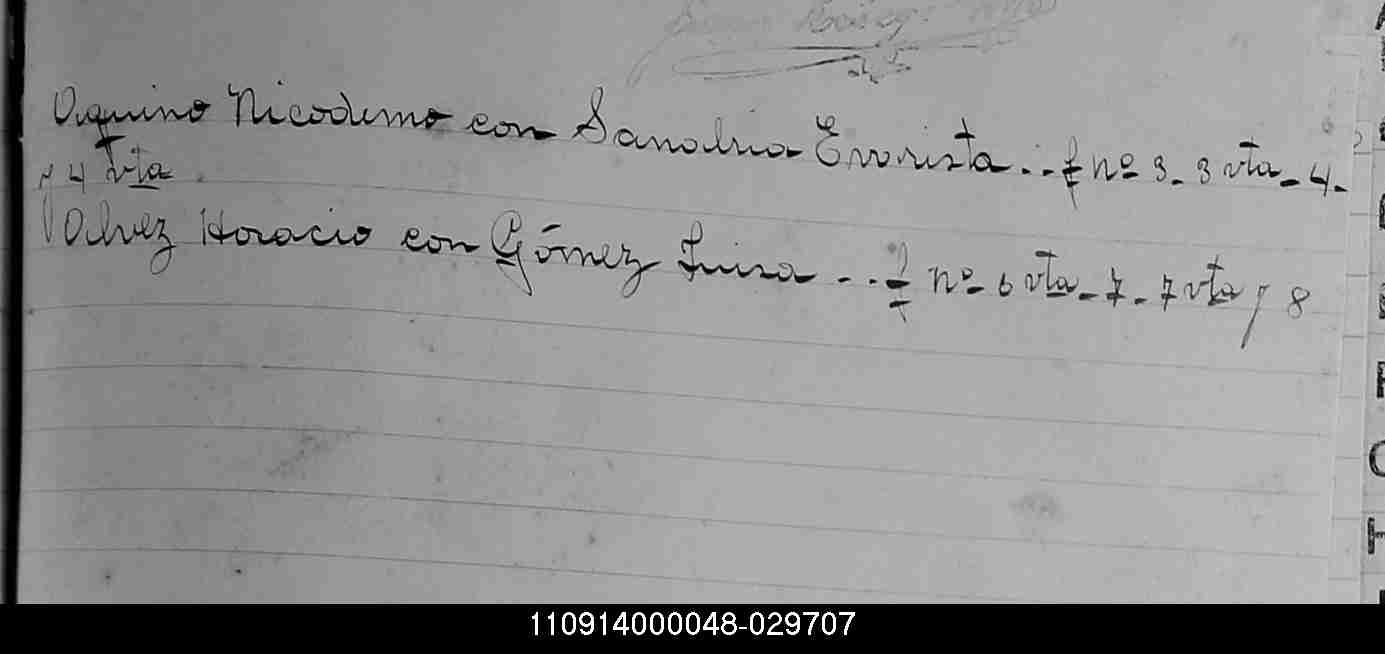 Aquino Nicodemo con Sanabria Evarista...f nº 3_3 vta_4_
y 4 vta
Alvez Horacio con Gómez Luisa...f nº 6 vta_7_7 vta y 8
110914000048-029707